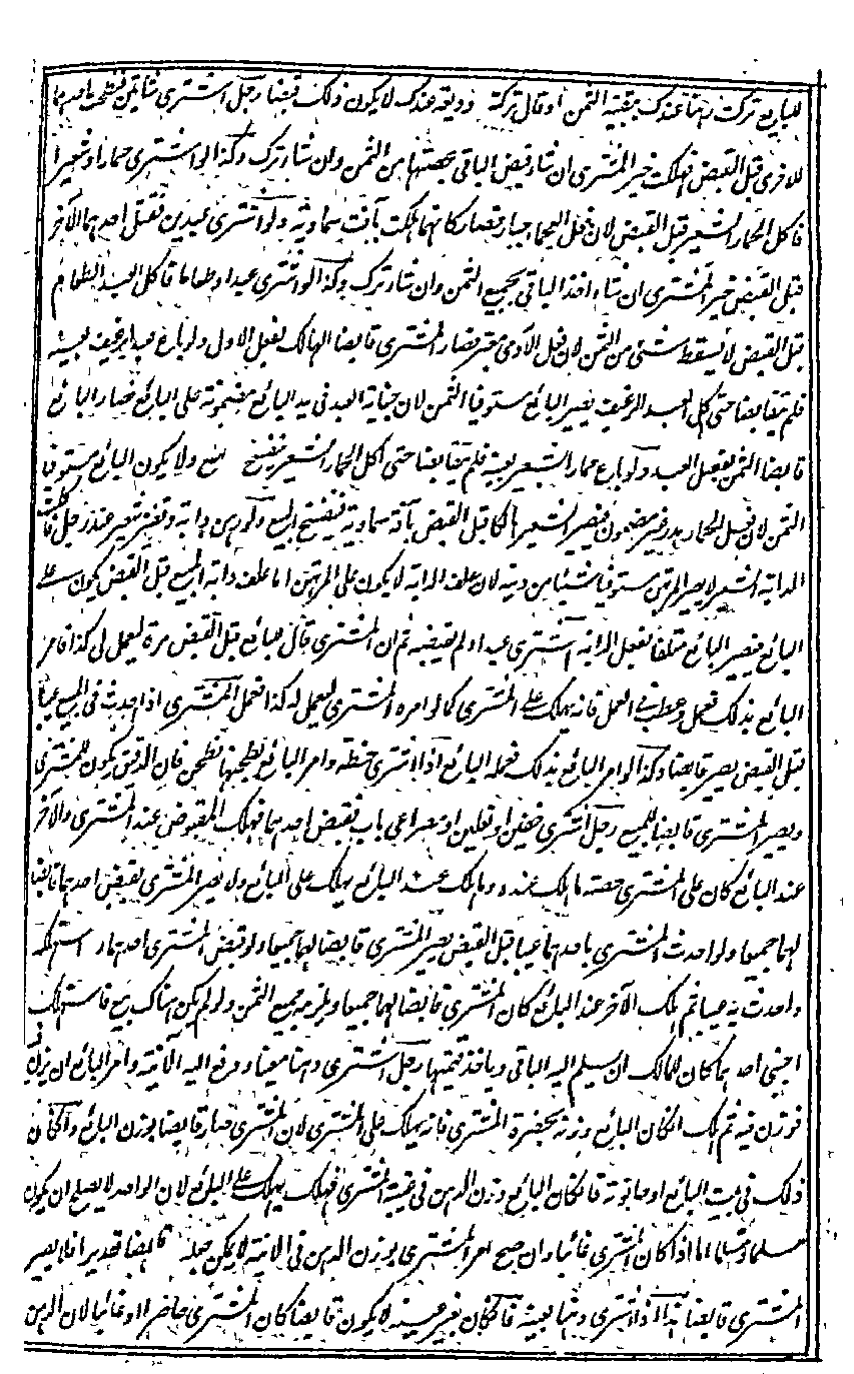 للبايع تركت رهنا عندك ببقية الثمن او قال تركته وديعة عندك لا يكون ذلك قبضا رجل اشترى شاتين فنطحت احدهما
للاخرى قبل القبض فهلكت خير المشترى ان شاء قبض الباقى بحصتها من الثمن وان شاء ترك وكذا لو اشترى حمارا وشعيرا
فاكل الحمار الشعير قبل القبض لان فعل العجماء جبار فصار كانها هلكت بآفة سماوية ولو اشترى عبدين فقتل احدهما الآخر
قبل القبض خير المشترى ان شاء اخذ الباقى بجميع الثمن وان شاء ترك وكذا لو اشترى عبدا وطعاما فاكل العبد الطعام
قبل القبض لا يسقط شئ من الثمن لان فعل الآدمى معتبر فصار المشترى قابضا الهالك بفعل الاول ولو باع عبدا برغيف بعينه
فلم يتقابضا حتى اكل العبد الرغيف يصير البائع مستوفيا الثمن لان جناية العبد فى يد البائع مضمونة على البائع فصار البائع
قابضا الثمن بفعل العبد ولو باع حمارا بشعير بعينه فلم يتقابضا حتى اكل الحمار الشعير ينفسخ البيع ولا يكون البائع مستوفيا
الثمن لان فعل الحمار هدر غير مضمون فيصير الشعير هالكا قبل القبض بآفة سماوية فينفسخ البيع ولو رهن دابة وقفيز شعير عند رجل فاكلت
الدابة الشعير لا يصير المرتهن مستوفيا شيئا من دينه لان علف الدابة لا يكون على المرتهن اما علف دابة المبيع قبل القبض يكون على
البائع فيصير البائع متلفا بفعل الدابة اشترى عبدا ولم يقبضه ثم ان المشترى قال للبائع قبل القبض مره ليعمل لى كذا فامر
البائع بذلك فعمل وعطب فى العمل فانه يهلك على المشترى كما لو امره المشترى ليعمل له كذا فعمل المشترى اذا احدث فى المبيع عيبا
قبل القبض يصير قابضا وكذا لو امر البائع بذلك ففعله البائع اذا اشترى حنطة وامر البائع بطحنها فطحن فان الدقيق يكون للمشترى
ويصير المشترى قابضا للمبيع رجل اشترى خفين او نعلين او مصراعى باب فقبض احدهما فهلك المقبوض عند المشترى والآخر
عند البائع كان على المشترى حصته ما هلك عنده وما هلك عند البائع يهلك على البائع ولا يصير المشترى بقبض احدهما قابضا
لهما جميعا ولو احدث المشترى باحدهما عيبا قبل القبض يصير المشترى قابضا لهما جميعا ولو قبض المشترى احدهما واستهلكه
واحدث به عيبا ثم هلك الآخر عند البائع كان المشترى قابضا لهما جميعا ويلزمه جميع الثمن ولو لم يكن هناك بيع فاستهلك
اجنبى احدهما كان للمالك ان يسلم اليه الباقى وياخذ قيمتهما رجل اشترى دهنا معينا ودفع اليه الآنية وامر البائع ان يزن فيه
فوزن فيه ثم هلك ان كان البائع وزنه بحضرة المشترى فانه يهلك على المشترى لان المشترى صار قابضا بوزن البائع وان كان
ذلك فى بيت البائع او حانوته فان كان البائع وزن الدهن فى غيبة المشترى فهلك يهلك على البائع لان الواحد لا يصلح ان يكون
مسلما ومتسلما اما اذا كان المشترى غائبا وان صح امر المشترى بوزن الدهن فى الآنية لا يمكن جعله قابضا تقديرا فلا يصير
المشترى قابضا هذا اذا اشترى دهنا بعينه فان كان بغير عينه لا يكون قابضا كان المشترى حاضرا او غائبا لان الدهن